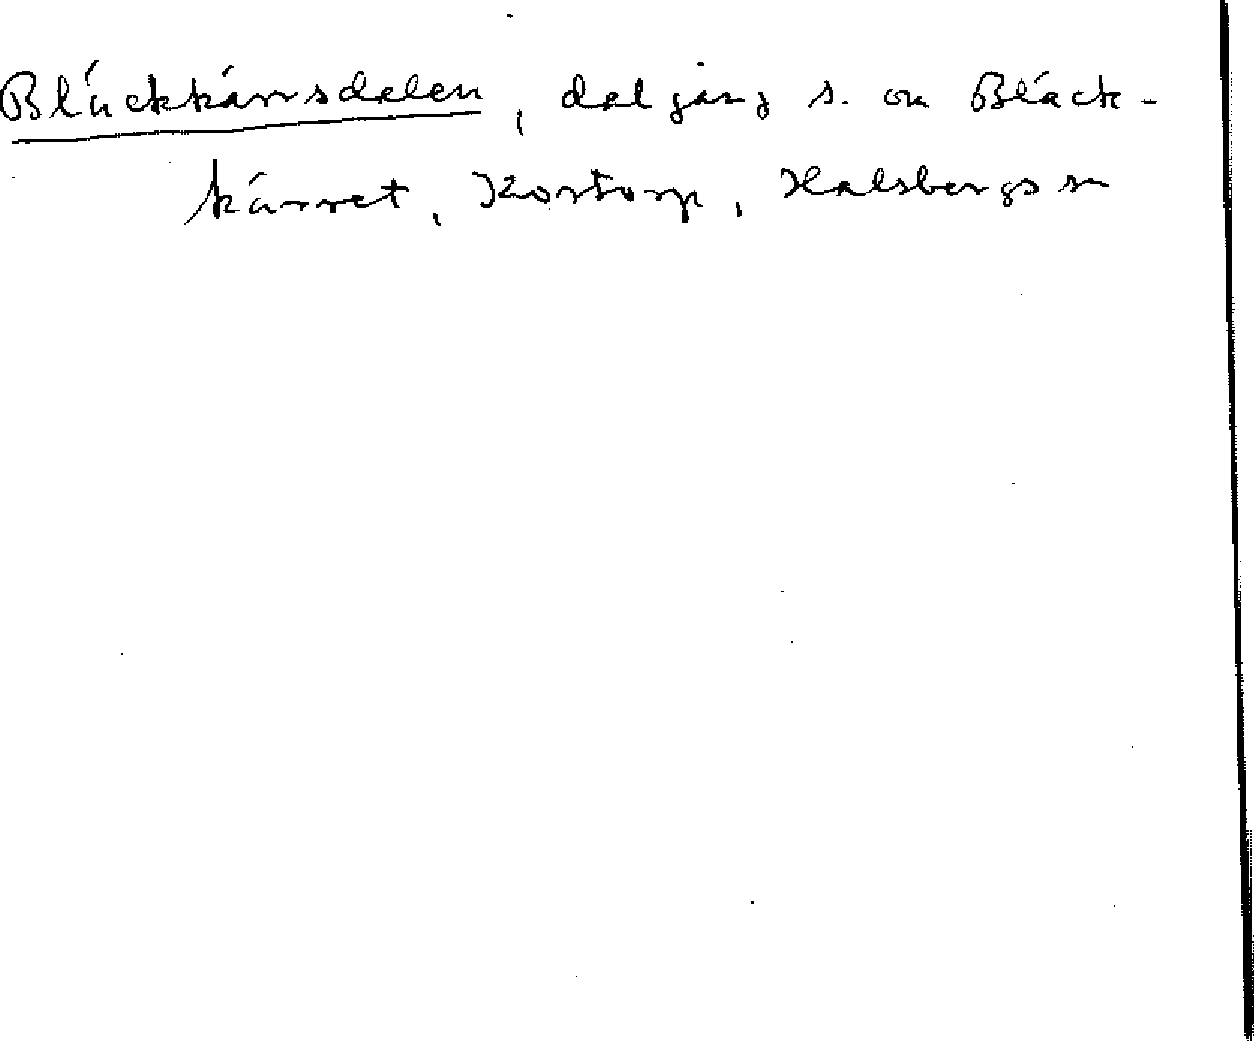 Bläckkärrsdalen, dalgång s. om Bläck-
kärret, Kostorp, Halsbergs sn